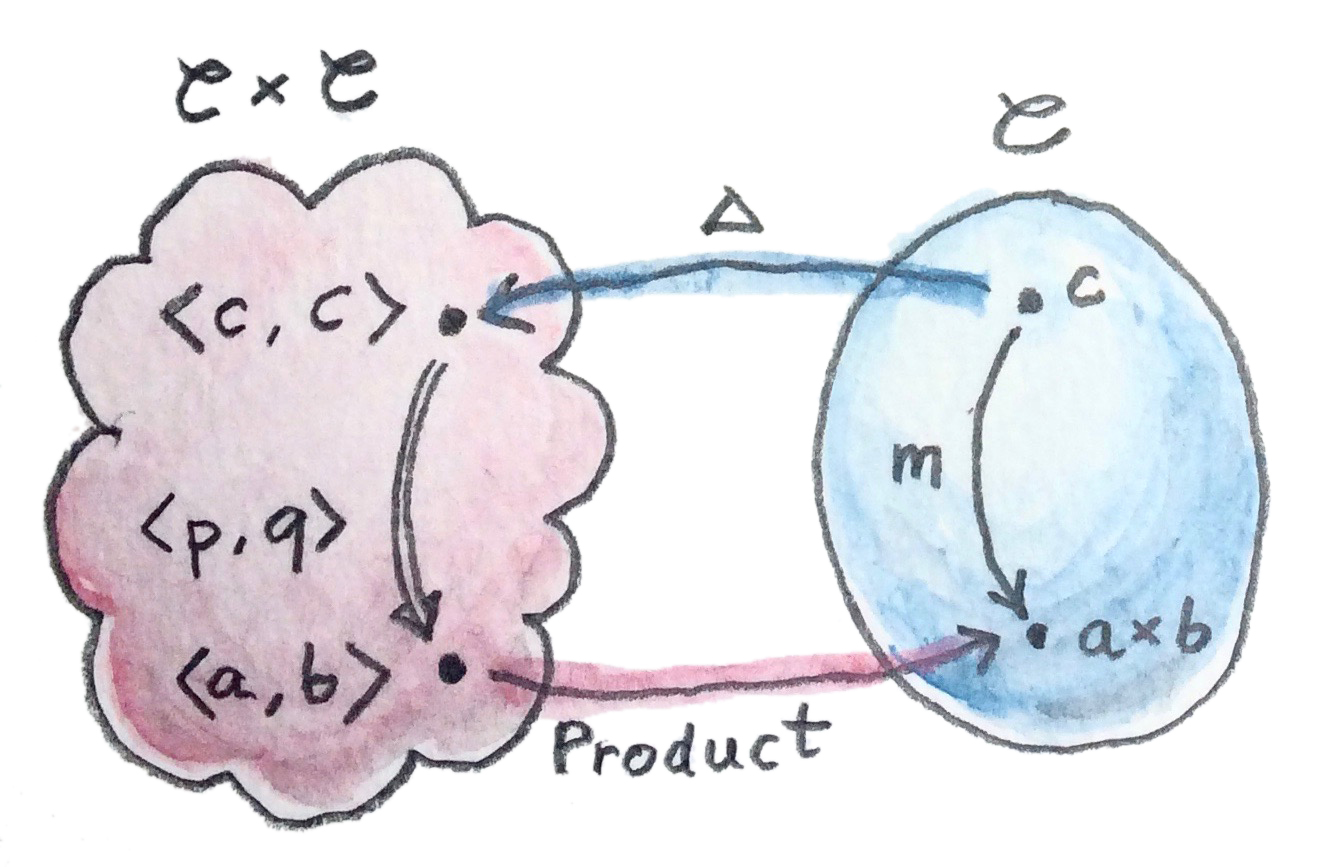 𝒞 × 𝒞
𝒞
Δ
<c, c>
c
m
<p, q>
a×b
<a, b>
Product